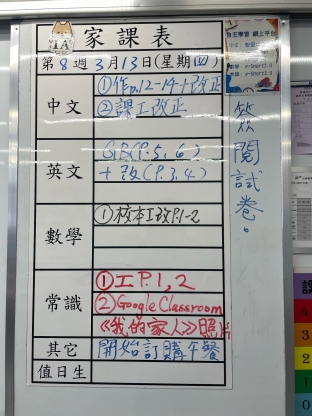 家課表
第8週3月13日(星期四)
中文
①作p.12-14+改正
②課工改正
英文
GE(P.5,6)
+改(P.3,4)
數學
①校本工改P.1-2
常識
①工P.1,2
②Google Classroom
《我的家人》照片
其它
開始訂購午餐
值日生
簽閱試卷。
自主學習 網上平台